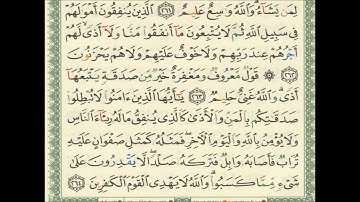 لِمَن يَشَآءُ وَٱللَّهُ وَٰسِعٌ عَلِيمٌ ٢٦١ ٱلَّذِينَ يُنفِقُونَ أَمْوَٰلَهُمْ
فِى سَبِيلِ ٱللَّهِ ثُمَّ لَا يُتْبِعُونَ مَآ أَنفَقُوا۟ مَنًّا وَلَآ أَذًى لَّهُمْ
أَجْرُهُمْ عِندَ رَبِّهِمْ وَلَا خَوْفٌ عَلَيْهِمْ وَلَا هُمْ يَحْزَنُونَ
٢٦٢ قَوْلٌ مَّعْرُوفٌ وَمَغْفِرَةٌ خَيْرٌ مِّن صَدَقَةٍ يَتْبَعُهَآ
أَذًى وَٱللَّهُ غَنِىٌّ حَلِيمٌ ٢٦٣ يَٰٓأَيُّهَا ٱلَّذِينَ ءَامَنُوا۟ لَا تُبْطِلُوا۟
صَدَقَٰتِكُم بِٱلْمَنِّ وَٱلْأَذَىٰ كَٱلَّذِى يُنفِقُ مَالَهُۥ رِئَآءَ ٱلنَّاسِ
وَلَا يُؤْمِنُ بِٱللَّهِ وَٱلْيَوْمِ ٱلْءَاخِرِ فَمَثَلُهُۥ كَمَثَلِ صَفْوَانٍ عَلَيْهِ
تُرَابٌ فَأَصَابَهُۥ وَابِلٌ فَتَرَكَهُۥ صَلْدًا لَّا يَقْدِرُونَ عَلَىٰ
شَىْءٍ مِّمَّا كَسَبُوا۟ وَٱللَّهُ لَا يَهْدِى ٱلْقَوْمَ ٱلْكَٰفِرِينَ ٢٦٤